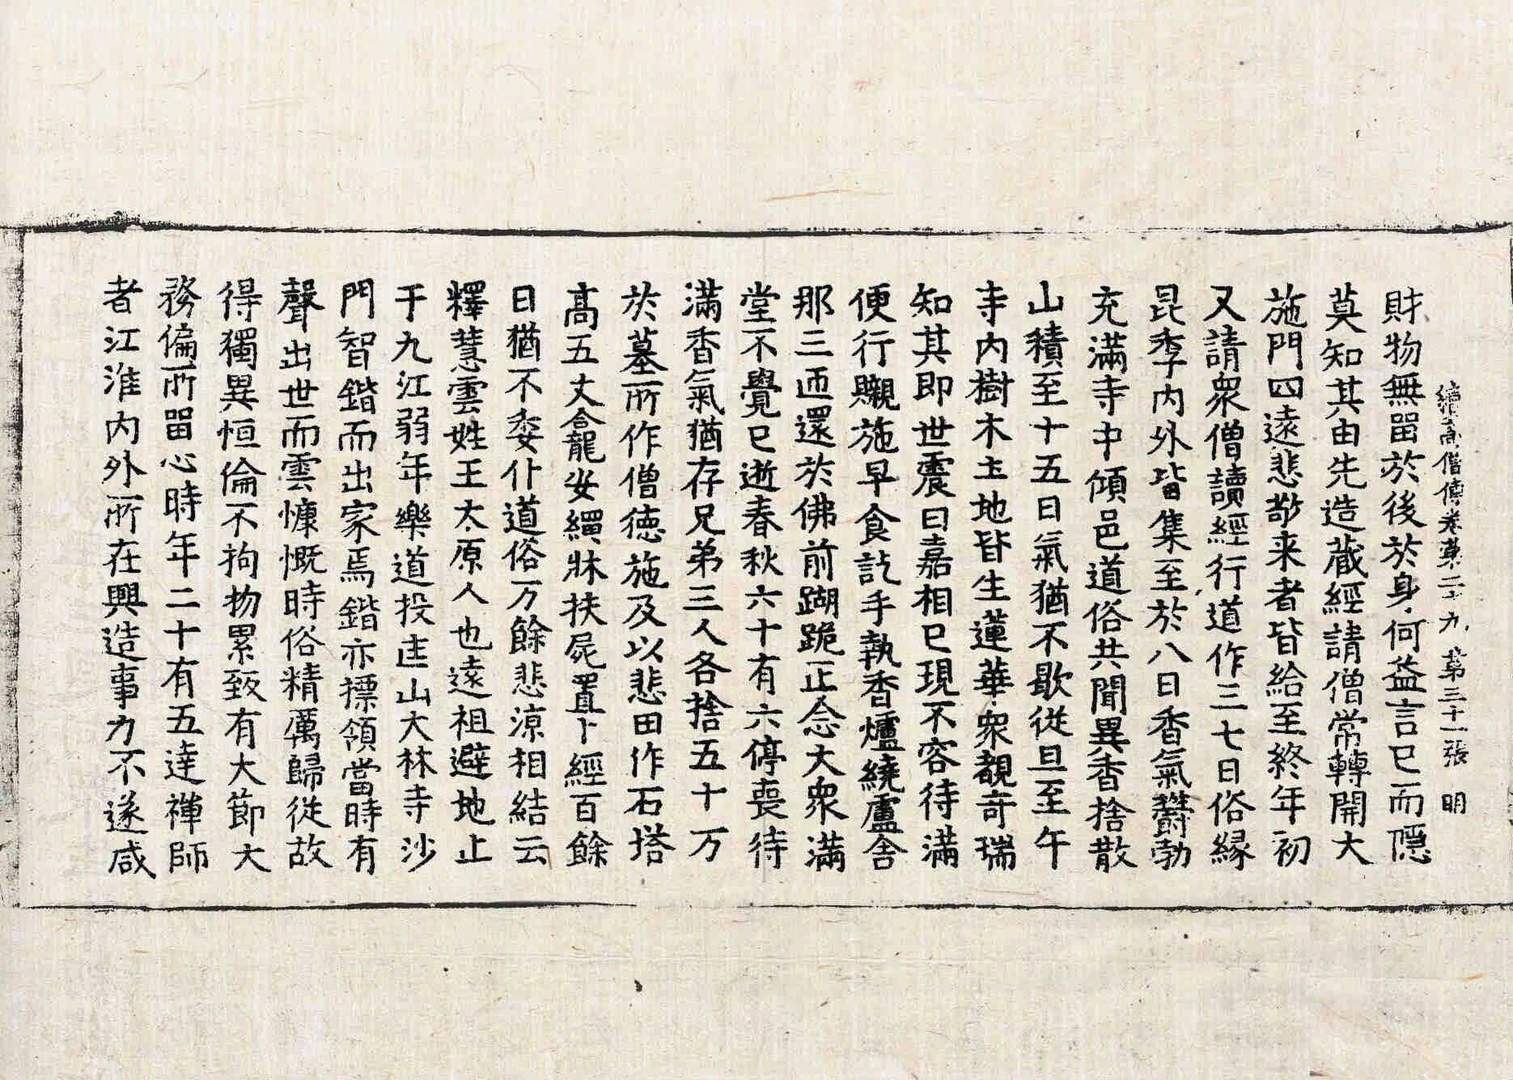 續高僧傳卷第二十九 第三十一張 明
財物無畱於後於身何益言已而隱
莫知其由先造藏經請僧常轉開大
施門四遠悲敬来者皆給至終年初
又請衆僧讀經行道作三七日俗縁
昆季内外皆集至於八日香氣欝勃
充滿寺中傾邑道俗共聞異香捨散
山積至十五日氣猶不歇從旦至午
寺内樹木土地皆生蓮華衆覩奇瑞
知其即世震曰嘉相已現不容待滿
便行䞋施早食訖手執香爐繞盧舍
那三匝還於佛前䠒跪正念大衆滿
堂不覺已逝春秋六十有六停喪待
滿香氣猶存兄弟三人各捨五十万
於墓所作僧徳施及以悲田作石塔
高五丈龕安繩牀扶屍置上經百餘
日猶不委仆道俗万餘悲涼相結云
釋慧雲姓王太原人也遠祖避地止
于九江弱年樂道投匡山大林寺沙
門智鍇而出家焉鍇亦摽領當時有
聲出世而雲慷慨時俗精厲歸從故
得獨異恒倫不拘物累致有大節大
務偏所畱心時年二十有五達禪師
者江淮内外所在興造事力不遂咸